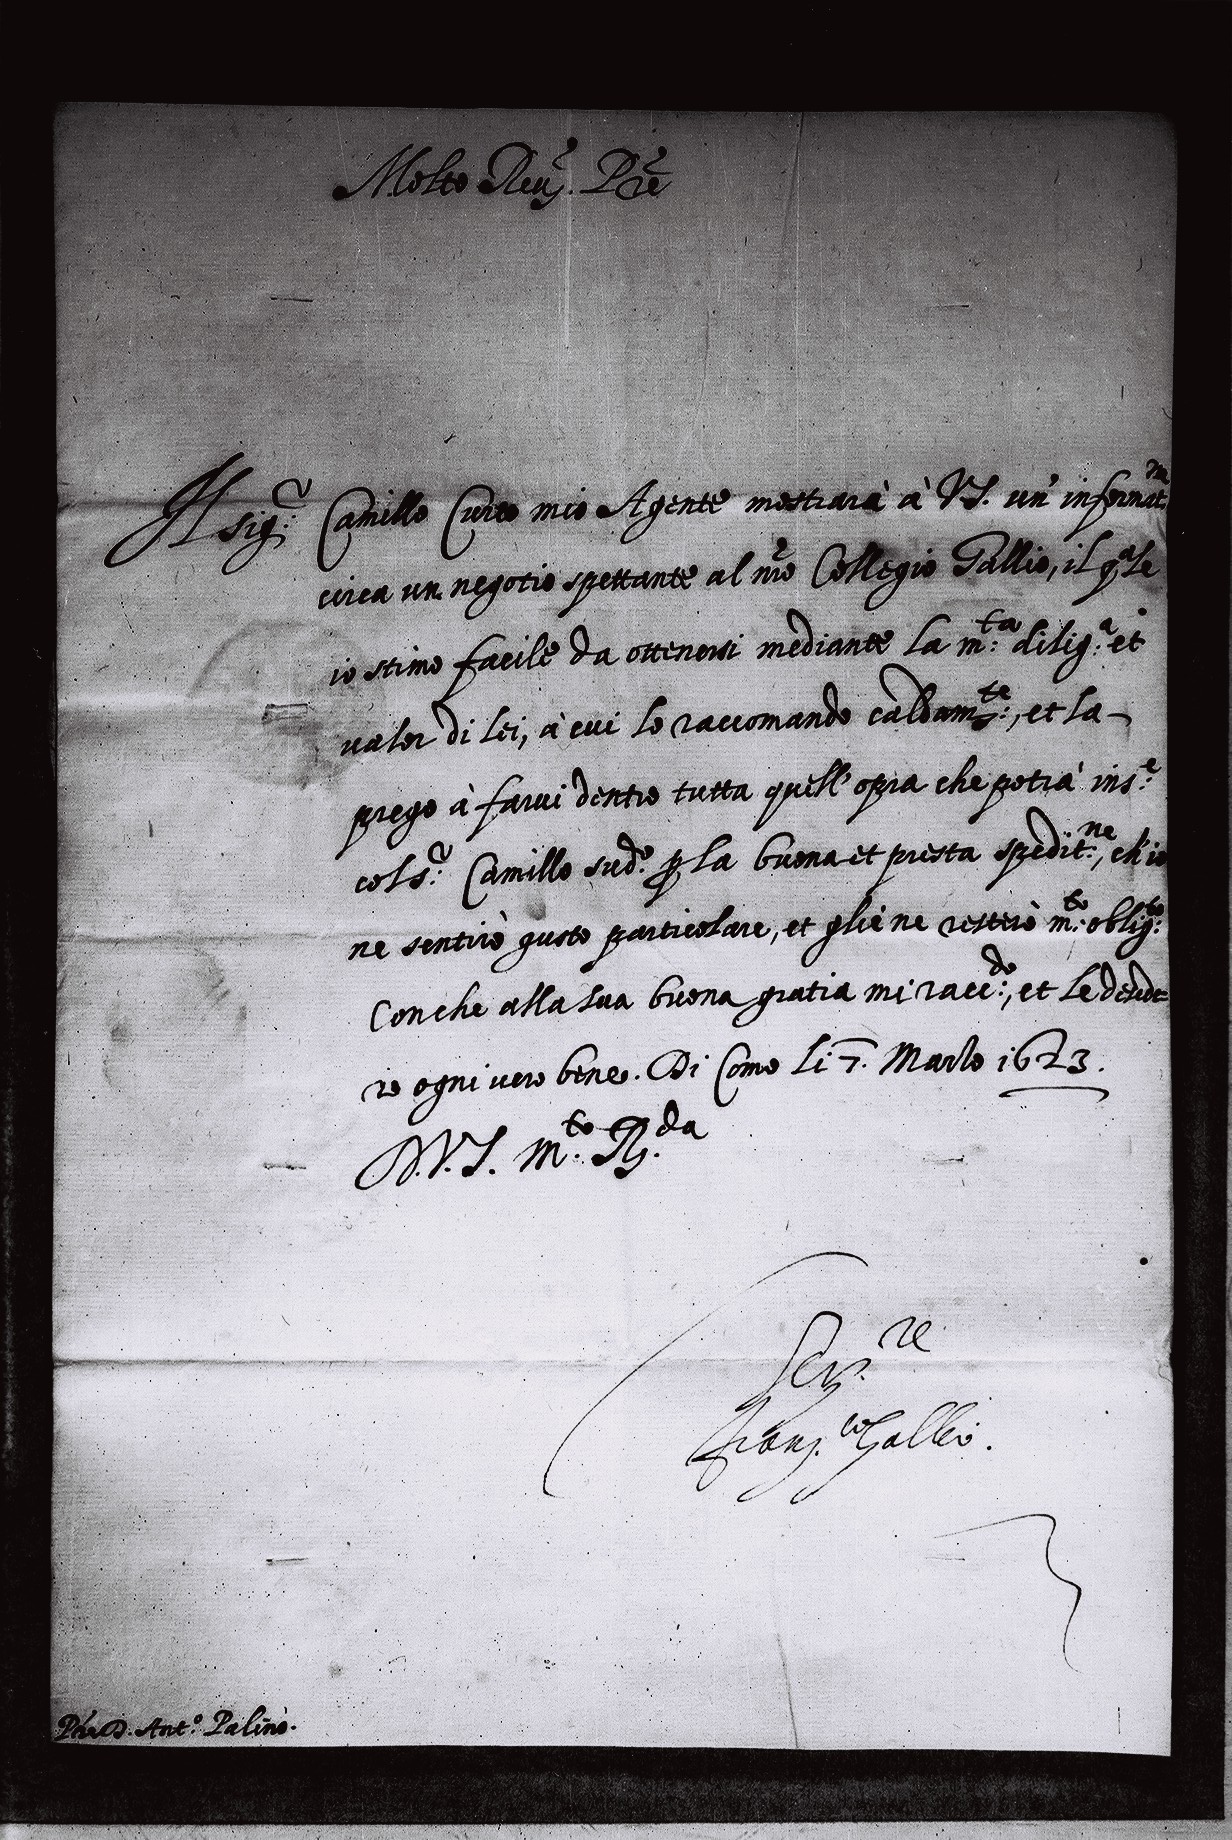 Molto Reu.ᵈ Prē
Il sig.ʳ Camillo Curto mio Agente mostrarà à VS. un' informat.ⁿᵉ
circa un negotio spettante al nr̄o Collegio Gallio, il qᵃle
io stimo facile da ottenersi mediante la m.ᵗᵃ dilig.ᵃ et
valor di lei, à cui lo raccomando caldam.ᵗᵉ, et la
prego à farui dentro tutta quell' opra che potrà ins.ᵉ
col s.ʳ Camillo sud.ᵒ ꝑ la buona et presta spedit.ⁿᵉ, ch'io
ne sentirò gusto particolare, et gliene resterò m.ᵗᵒ oblig.ᵗᵒ
Con che alla sua buona gratia mi racc.ᵈᵒ, et le deside
ro ogni vero bene. Di Como li 7. Marzo 1623.
D.V.S. M.ᵗᵒ R.ᵈᵃ
Ser.ʳᵉ
Franc.ᶜᵒ Gallio.
Pr̄e D. Ant.ᵒ Palino.